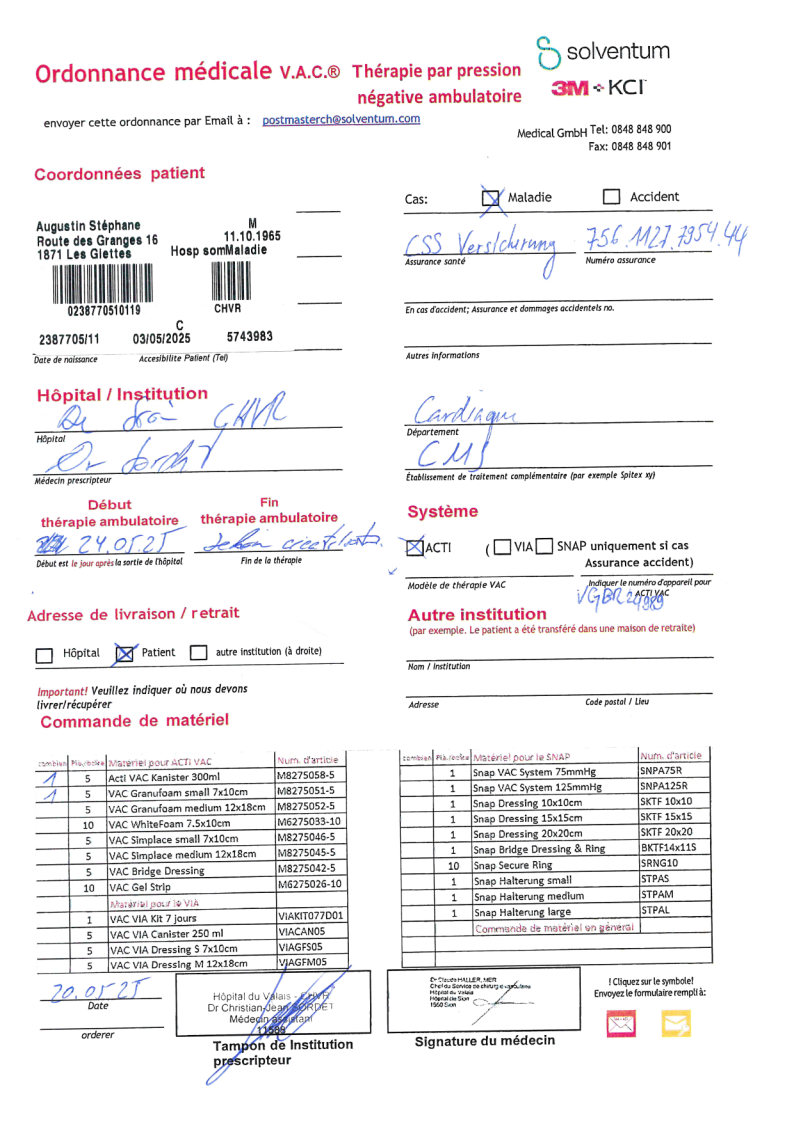 solventum
3M KCI
Ordonnance médicale V.A.C.® Thérapie par pression
négative ambulatoire
envoyer cette ordonnance par Email à : postmasterch@solventum.com
Medical GmbH Tel: 0848 848 900
Fax: 0848 848 901
Coordonnées patient
Augustin Stéphane M
Route des Granges 16 11.10.1965
1871 Les Giettes Hosp somMaladie
0238770510119 CHVR
C
2387705/11 03/05/2025 5743983
Date de naissance Accesibilite Patient (Tel)
Cas: Maladie Accident
CSS Versicherung 756.1127.7954.44
Assurance santé Numéro assurance
En cas d'accident; Assurance et dommages accidentels no.
Autres informations
Hôpital / Institution
CHVR
Hôpital
Dr
Médecin prescripteur
Département
CMS
Établissement de traitement complémentaire (par exemple Spitex xy)
Début
thérapie ambulatoire
Fin
thérapie ambulatoire
24.05.25
Début est le jour après la sortie de l'hôpital Fin de la thérapie
Système
ACTI ( VIA SNAP uniquement si cas
Assurance accident)
Modèle de thérapie VAC Indiquer le numéro d'appareil pour
ACTI VAC
Adresse de livraison / retrait
Hôpital Patient autre institution (à droite)
Important! Veuillez indiquer où nous devons
livrer/récupérer
Autre institution
(par exemple. Le patient a été transféré dans une maison de retraite)
Nom / Institution
Adresse Code postal / Lieu
Commande de matériel
combien Pia./boite Matériel pour ACTI VAC Num. d'article
1 5 Acti VAC Kanister 300ml M8275058-5
1 5 VAC Granufoam small 7x10cm M8275051-5
5 VAC Granufoam medium 12x18cm M8275052-5
10 VAC WhiteFoam 7.5x10cm M6275033-10
5 VAC Simplace small 7x10cm M8275046-5
5 VAC Simplace medium 12x18cm M8275045-5
5 VAC Bridge Dressing M8275042-5
10 VAC Gel Strip M6275026-10
Matériel pour le VIA
1 VAC VIA Kit 7 jours VIAKIT077D01
5 VAC VIA Canister 250 ml VIACAN05
5 VAC VIA Dressing S 7x10cm VIAGFS05
5 VAC VIA Dressing M 12x18cm VIAGFM05
combien Pia./boite Matériel pour le SNAP Num. d'article
1 Snap VAC System 75mmHg SNPA75R
1 Snap VAC System 125mmHg SNPA125R
1 Snap Dressing 10x10cm SKTF 10x10
1 Snap Dressing 15x15cm SKTF 15x15
1 Snap Dressing 20x20cm SKTF 20x20
1 Snap Bridge Dressing & Ring BKTF14x11S
10 Snap Secure Ring SRNG10
1 Snap Halterung small STPAS
1 Snap Halterung medium STPAM
1 Snap Halterung large STPAL
Commande de matériel en général
20.05.25
Date
orderer
Hôpital du Valais - CHVR
Dr Christian-Jean
Médecin assistant
Tampon de Institution
prescripteur
Dr Claude HALLER, MER
Chef du Service de chirurgie vasculaire
Hôpital du Valais
Hôpital de Sion
1950 Sion
Signature du médecin
! Cliquez sur le symbole!
Envoyez le formulaire rempli à: